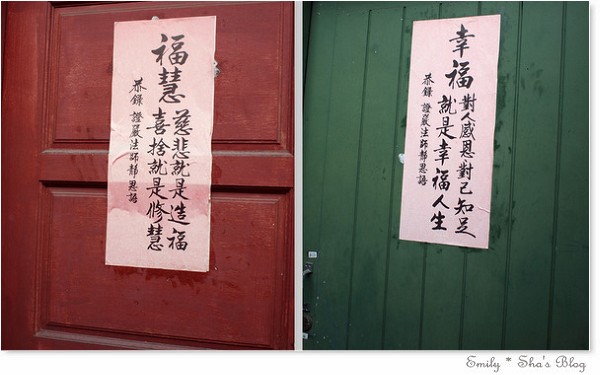 福慧
慈悲就是造福
喜捨就是修慧
恭錄 證嚴法師靜思語
幸福
對人感恩對己知足
就是幸福人生
恭錄 證嚴法師靜思語
Emily * Sha's Blog